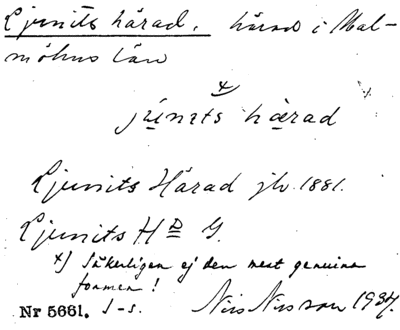 Ljunits härad. härad i Mal-
möhus län
x)
júnits hàrad
Ljunits Härad jb. 1881.
Ljunits H D G.
x) Säkerligen ej den mest genuina
formen!
Nr 5661. S-s. Nils Nilsson 1934.